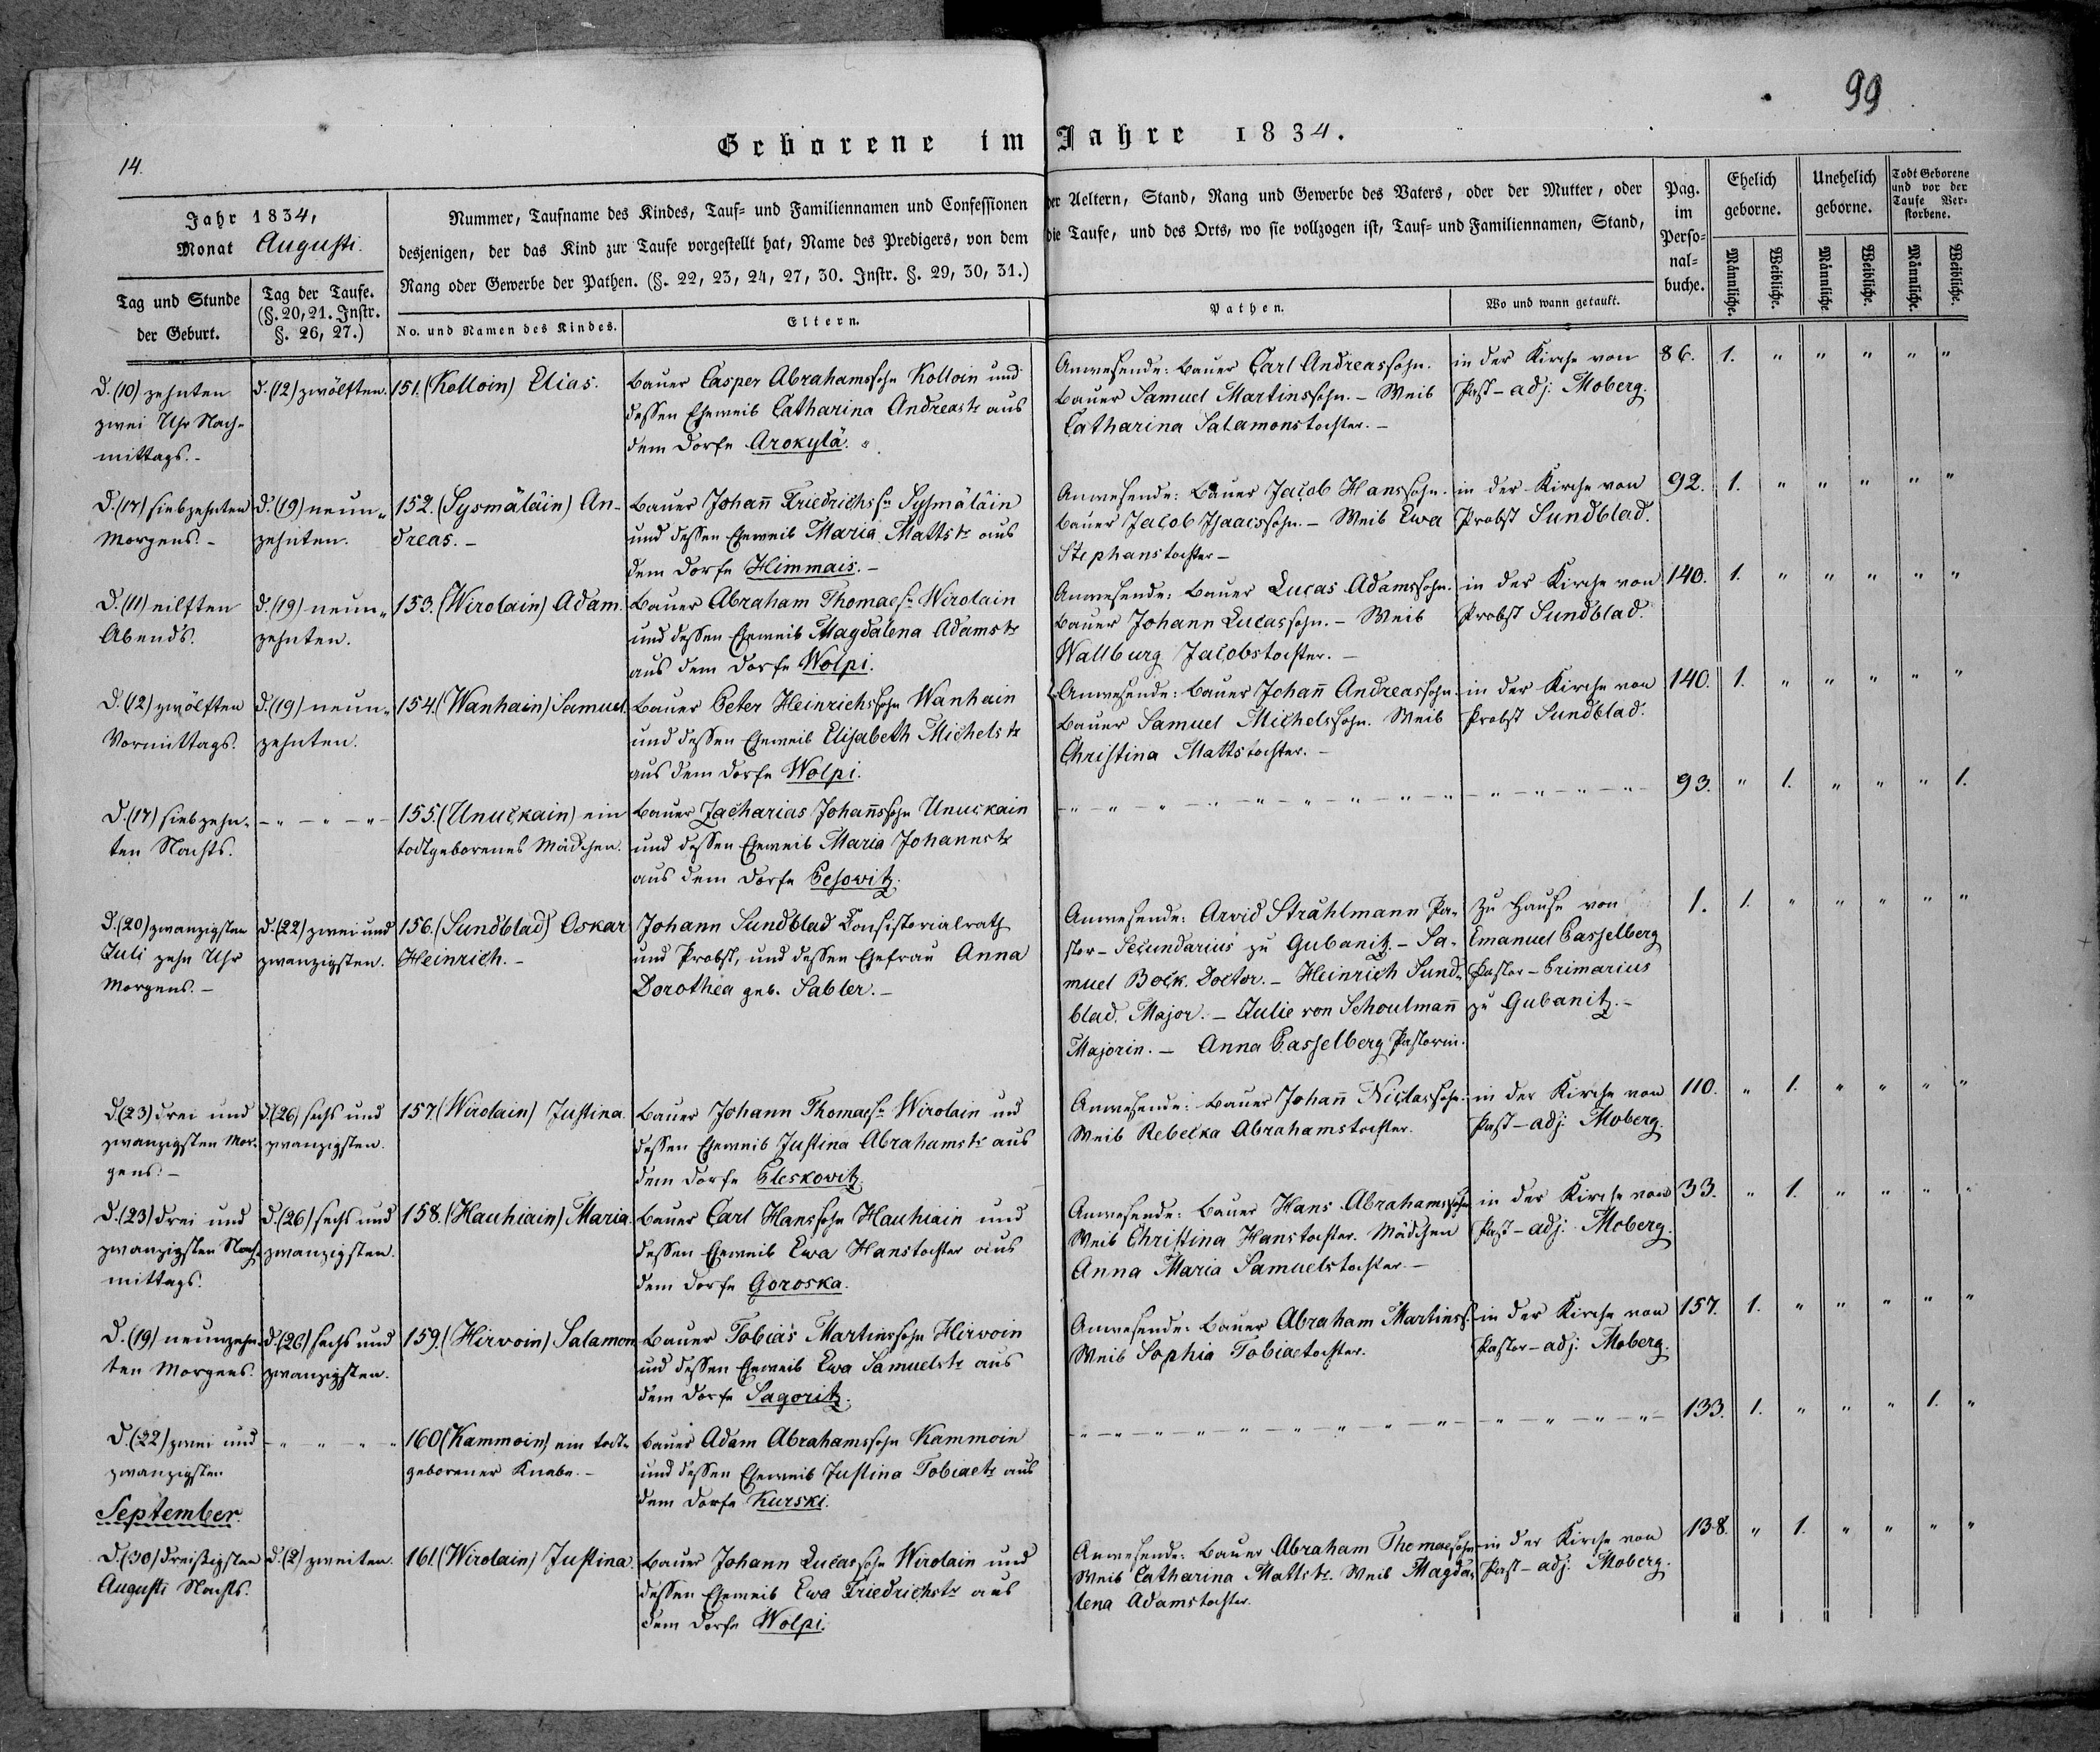 99
14.
Geborene im Jahre 1834.
Jahr 1834,
Monat Augusti.
Tag und Stunde
der Geburt.
Tag der Taufe.
(§. 20, 21. Instr.
§. 26, 27.)
Nummer, Taufname des Kindes, Tauf= und Familiennamen und Confessionen
desjenigen, der das Kind zur Taufe vorgestellt hat, Name des Predigers, von dem
Rang oder Gewerbe der Pathen. (§. 22, 23, 24, 27, 30. Instr. §. 29, 30, 31.)
No. und Namen des Kindes.
Eltern.
der Aeltern, Stand, Rang und Gewerbe des Vaters, oder der Mutter, oder
die Taufe, und des Orts, wo sie vollzogen ist, Tauf= und Familiennamen, Stand,
Pathen.
Wo und wann getauft.
Pag.
im
Perso=
nal=
buche.
Ehelich
geborne.
Unehelich
geborne.
Todt Geborene
und vor der
Taufe Ver=
storbene.
Männliche.
Weibliche.
Männliche.
Weibliche.
Männliche.
Weibliche.
D. (10) zehnten
zwei Uhr Nach-
mittags.-
d. (12) zwölften.
151. (Kolloin) Elias.
Bauer Casper Abrahamssohn Kolloin und
dessen Eheweib Catharina Andreastr aus
dem Dorfe Arokylä.
Anwesende: Bauer Carl Andreassohn.
Bauer Samuel Martinssohn. - Weib
Catharina Salamonstochter. -
in der Kirche von
Past-adj: Moberg.
86. 1. " " " " "
D. (17) siebzehnten
Morgens. -
d. (19) neun-
zehnten.
152. (Sysmäläin) An-
dreas. -
Bauer Johann̄ Friedrichssn Sysmäläin
und dessen Eheweib Maria Mattstr aus
dem Dorfe Himmais. -
Anwesende: Bauer Jacob Hanssohn.
Bauer Jacob Isaacssohn. - Weib Ewa
Stephanstochter -
in der Kirche von
Probst Sundblad.
92. 1. " " " " "
D. (11) eilften
Abends.
d. (19) neun-
zehnten.
153. (Wirolain) Adam.
Bauer Abraham Thomaesn Wirolain
und dessen Eheweib Magdalena Adamstr
aus dem Dorfe Wolpi.
Anwesende: Bauer Lucas Adamssohn.
Bauer Johann Lucassohn. - Weib
Wallburg Jacobstochter. -
in der Kirche von
Probst Sundblad.
140. 1. " " " " "
D. (12) zwölften
Vormittags.
d. (19) neun-
zehnten.
154. (Wanhain) Samuel.
Bauer Peter Heinrichssohn Wanhain
und dessen Eheweib Elisabeth Michelstr
aus dem Dorfe Wolpi.
Anwesende: Bauer Johan̄ Andreassohn.
Bauer Samuel Michelssohn. Weib
Christina Mattstochter. -
in der Kirche von
Probst Sundblad.
140. 1. " " " " "
D. (17) siebzehn-
ten Nachts.
- " - " - " -
155. (Unuckain) ein
todtgeborenes Mädchen.
Bauer Zacharias Johan̄ssohn Unuckain
und dessen Eheweib Maria Johannstr
aus dem Dorfe Pesowitz.
93. " 1. " " " 1.
D. (20) zwanzigsten
Juli zehn Uhr
Morgens. -
d. (22) zwei und
zwanzigsten.
156. (Sundblad) Oskar
Heinrich. -
Johann Sundblad Consistorialrath
und Probst, und dessen Ehefrau Anna
Dorothea geb. Sabler. -
Anwesende: Arvid Stråhlmann Pa-
stor-Secundarius zu Gubanitz. - Sa-
muel Bock. Doctor. - Heinrich Sund-
blad. Major. - Julie von Schoulman̄
Majorin. - Anna Casselberg Pastorin.
Zu Hause von
Emanuel Casselberg
Pastor-Primarius
zu Gubanitz. -
1. 1. " " " " "
D. (23) drei und
zwanzigsten Mor-
gens. -
d. (26) sechs und
zwanzigsten.
157. (Wirolain) Justina.
Bauer Johann Thomaesn Wirolain und
dessen Eheweib Justina Abrahamstr aus
dem Dorfe Pleskovitz.
Anwesende: Bauer Johan̄ Niclassohn.
Weib Rebecka Abrahamstochter.
in der Kirche von
Past-adj: Moberg.
110. " 1. " " " "
D. (23) drei und
zwanzigsten Nach-
mittags.
d. (26) sechs und
zwanzigsten.
158. (Hauhiain) Maria.
Bauer Carl Hanssohn Hauhiain und
dessen Eheweib Ewa Hanstochter aus
dem Dorfe Goroska.
Anwesende: Bauer Hans Abrahamssohn
Weib Christina Hanstochter. Mädchen
Anna Maria Samuelstochter -
in der Kirche von
Past-adj: Moberg.
33. " 1. " " " "
D. (19) neunzehn-
ten Morgens.
d. (26) sechs und
zwanzigsten.
159. (Hirvoin) Salamon
Bauer Tobias Martinssohn Hirvoin
und dessen Eheweib Ewa Samuelstr aus
dem Dorfe Sagoritz.
Anwesende: Bauer Abraham Martinss.
Weib Sophia Tobiaetochter.
in der Kirche von
Pastor-adj: Moberg.
157. 1. " " " " "
D. (22) zwei und
zwanzigsten
- " - " - " -
160 (Kammoin) ein todt-
geborener Knabe. -
Bauer Adam Abrahamssohn Kammoin
und dessen Eheweib Justina Tobiaetr aus
dem Dorfe Kurski.
133. 1. " " " 1. "
September.
D. (30) dreißigsten
Augusti Nachts.
d. (2) zweiten.
161. (Wirolain) Justina.
Bauer Johann Lucassohn Wirolain und
dessen Eheweib Ewa Friedrichstr aus
dem Dorfe Wolpi.
Anwesende: Bauer Abraham Thomaesohn
Weib Catharina Mattstr. Weib Magda-
lena Adamstochter.
in der Kirche von
Past-adj: Moberg.
138. " 1. " " " "